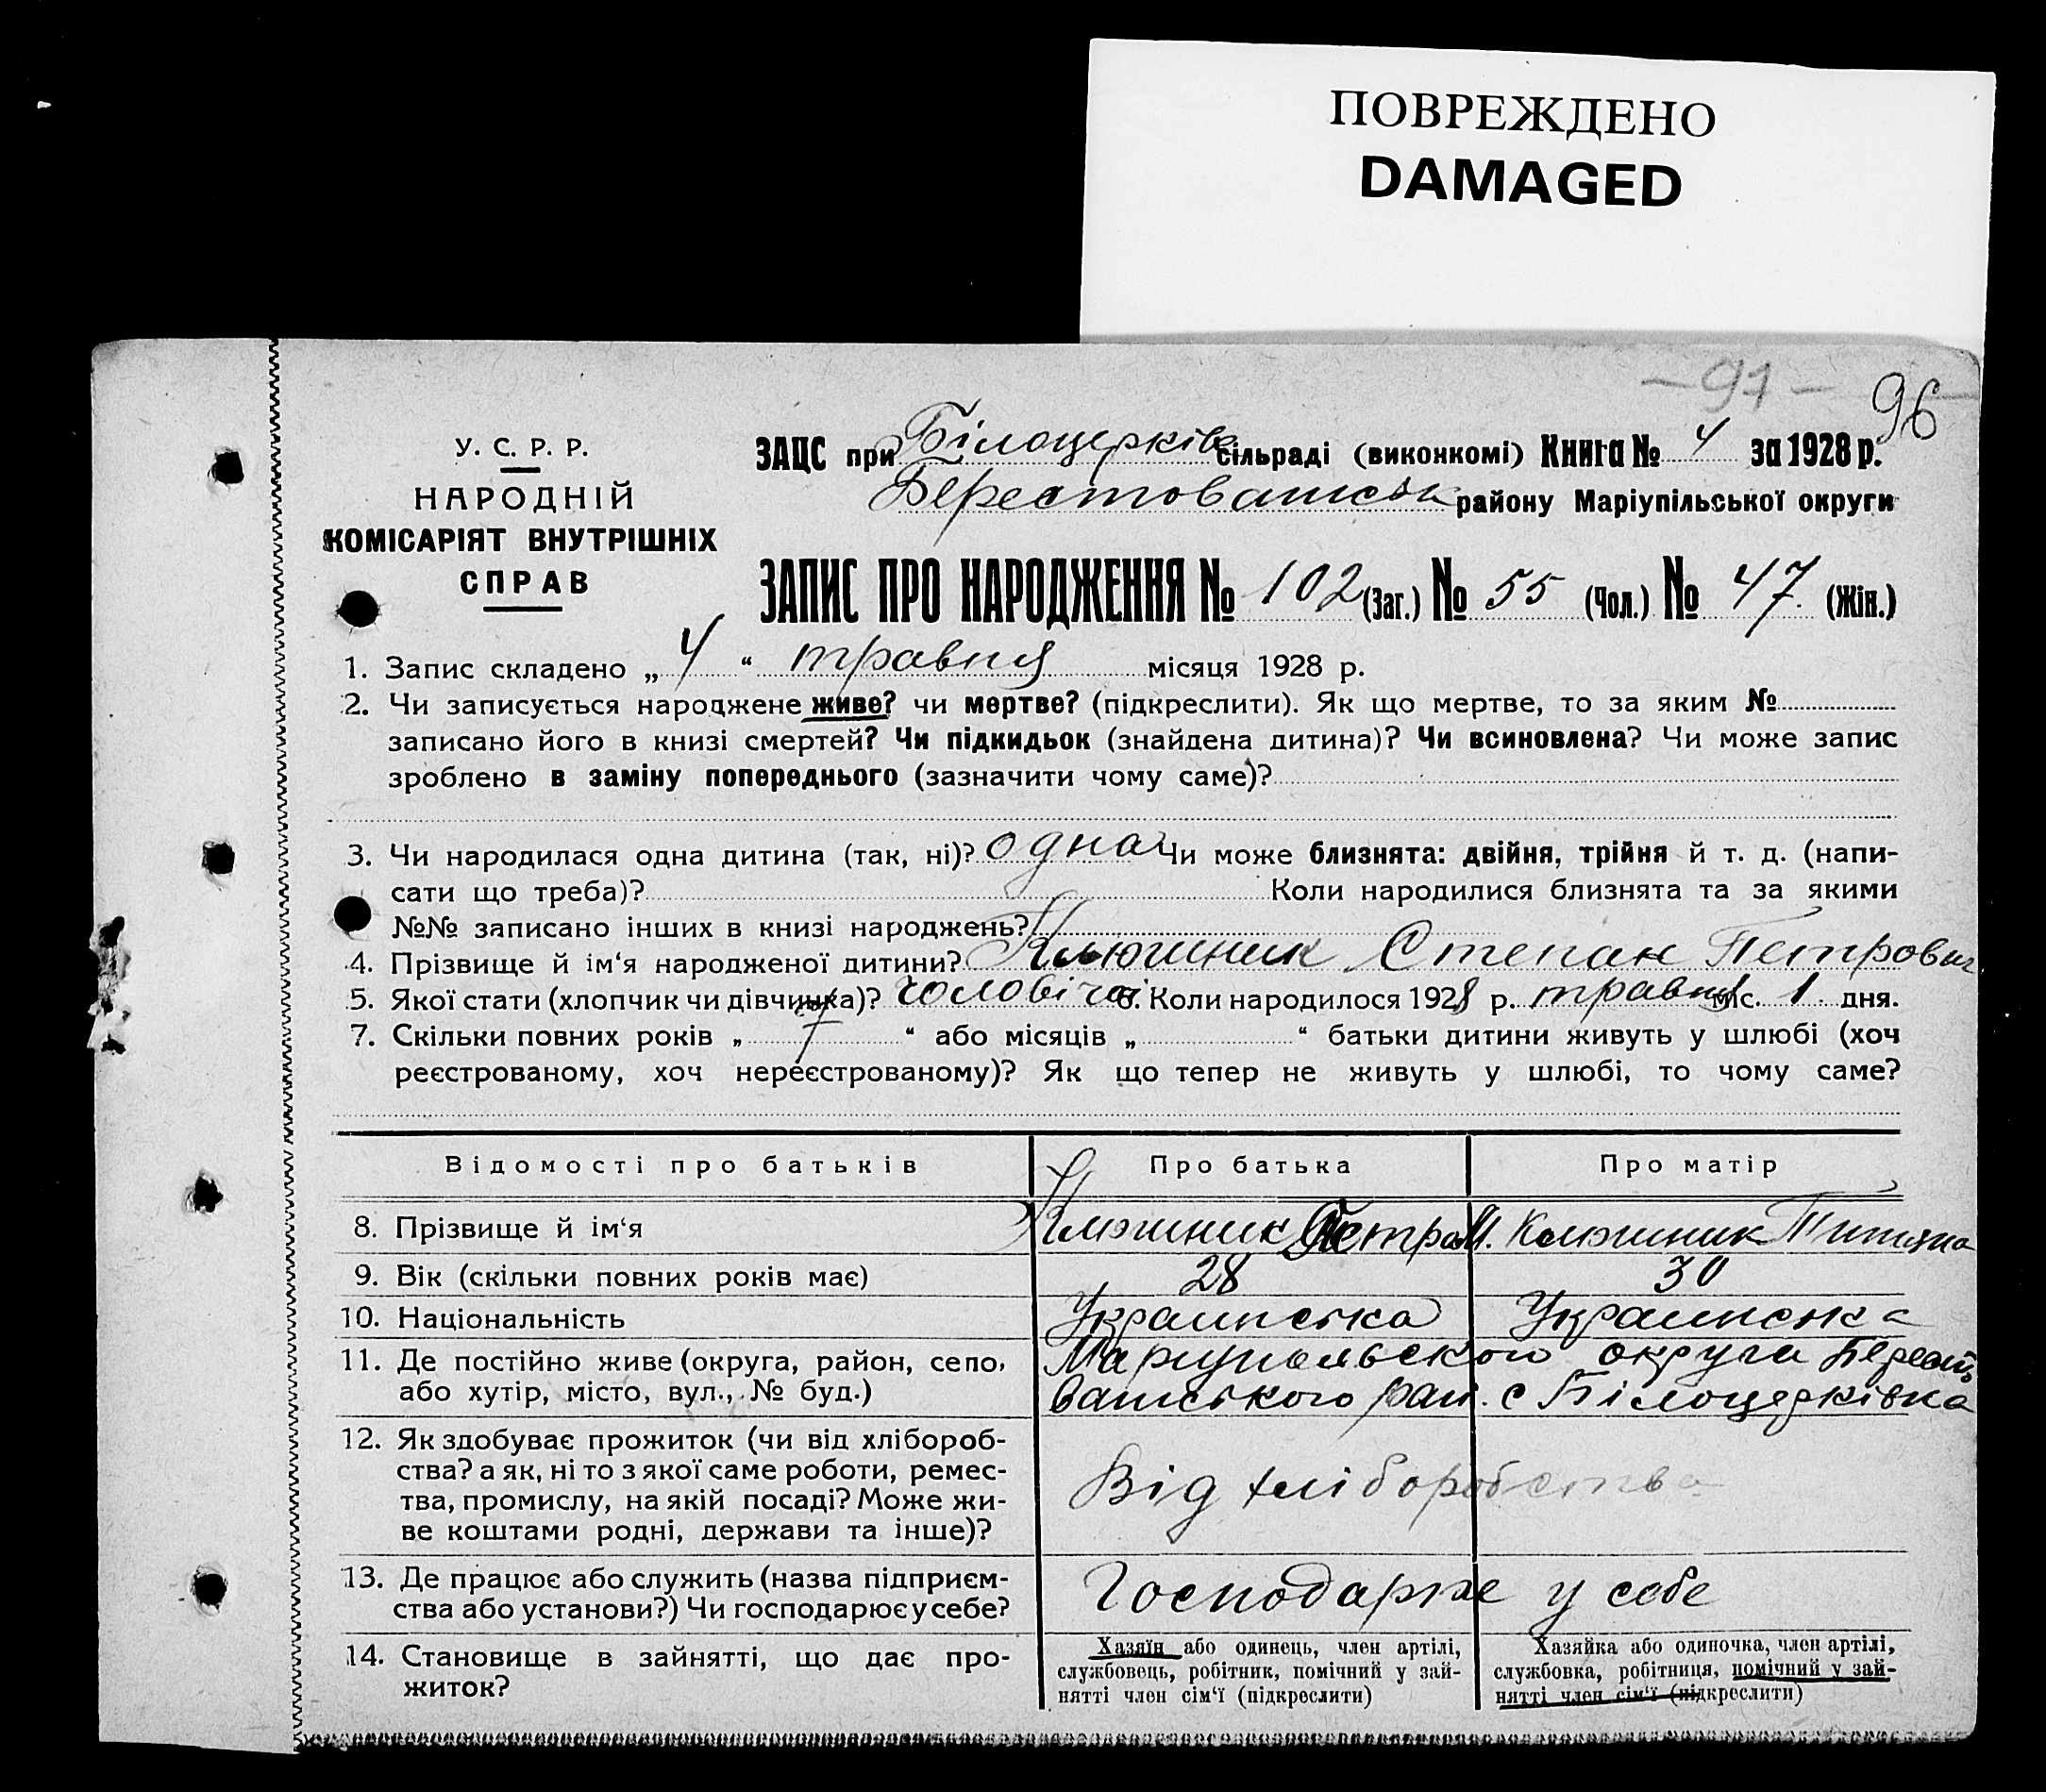 ПОВРЕЖДЕНО
DAMAGED
— 97 —
96
У. С. Р. Р.
НАРОДНІЙ
КОМІСАРІЯТ ВНУТРІШНІХ
СПРАВ
ЗАЦС при Білоцерків сільраді (виконкомі) Книга № 4 за 1928 р.
Берестоватськ району Маріупільської округи
ЗАПИС ПРО НАРОДЖЕННЯ № 102 (Заг.) № 55 (Чол.) № 47 (Жін.)
1. Запис складено „ 4 “ травня місяця 1928 р.
2. Чи записується народжене живе? чи мертве? (підкреслити). Як що мертве, то за яким №
записано його в книзі смертей? Чи підкидьок (знайдена дитина)? Чи всиновлена? Чи може запис
зроблено в заміну попереднього (зазначити чому саме)?
3. Чи народилася одна дитина (так, ні)? одна Чи може близнята: двійня, трійня й т. д. (напи-
сати що треба)? Коли народилися близнята та за якими
№№ записано інших в книзі народжень?
4. Прізвище й ім‘я народженої дитини? Клюшник Степан Петрович
5. Якої стати (хлопчик чи дівчинка)? чоловіча 6. Коли народилося 1928 р. травня міс. 1 дня.
7. Скільки повних років „ 7 “ або місяців „ “ батьки дитини живуть у шлюбі (хоч
реєстрованому, хоч нереєстрованому)? Як що тепер не живуть у шлюбі, то чому саме?
Відомості про батьків Про батька Про матір
8. Прізвище й ім‘я Клюшник Петро Клюшник
9. Вік (скільки повних років має) 28 30
10. Національність Украинська Украинська
11. Де постійно живе (округа, район, село, Мариупольского округа Бересто
або хутір, місто, вул., № буд.) ватського рай. с Білоцерківка
12. Як здобуває прожиток (чи від хлібороб-
ства? а як, ні то з якої саме роботи, ремес-
тва, промислу, на якій посаді? Може жи-
ве коштами родні, держави та інше)?
Від хліборобства
13. Де працює або служить (назва підприєм-
ства або установи?) Чи господарює у себе?
Господарює у себе
14. Становище в зайнятті, що дає про-
житок?
Хазяїн або одинець, член артілі,
службовець, робітник, помічний у зай-
нятті член сім‘ї (підкреслити)
Хазяйка або одиночка, член артілі,
службовка, робітниця, помічний у зай-
нятті член сім‘ї (підкреслити)